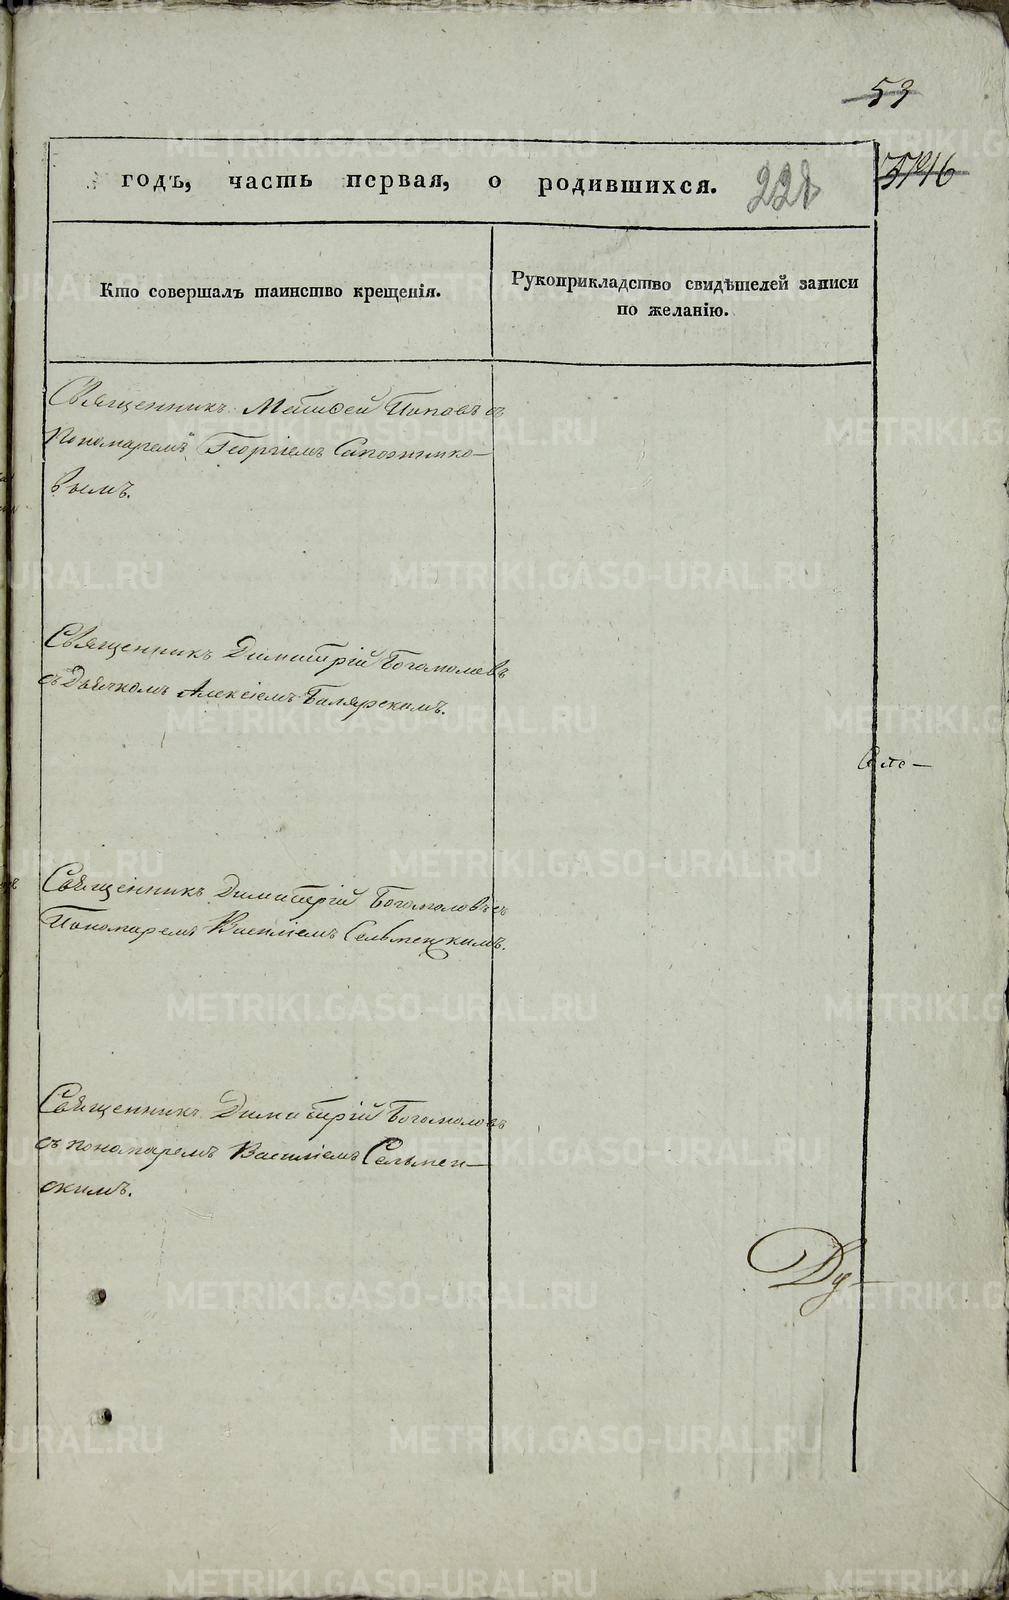 53
годъ, часть первая, о родившихся.
Кто совершалъ таинство крещенія.
Рукоприкладство свидѣтелей записи
по желанію.
Священникъ Матѳей Поповъ съ
Пономаремъ Георгіемъ Сапожнико-
вымъ.
Священникъ Димитрій Богомоловъ
съ Дьячкомъ Алексіемъ
Священникъ Димитрій Богомоловъ съ
Пономаремъ Василіемъ Сельменскимъ.
Священникъ Димитрій Богомоловъ
съ пономаремъ Василіемъ Сельмен-
скимъ.
Ду-
METRIKI.GASO-URAL.RU